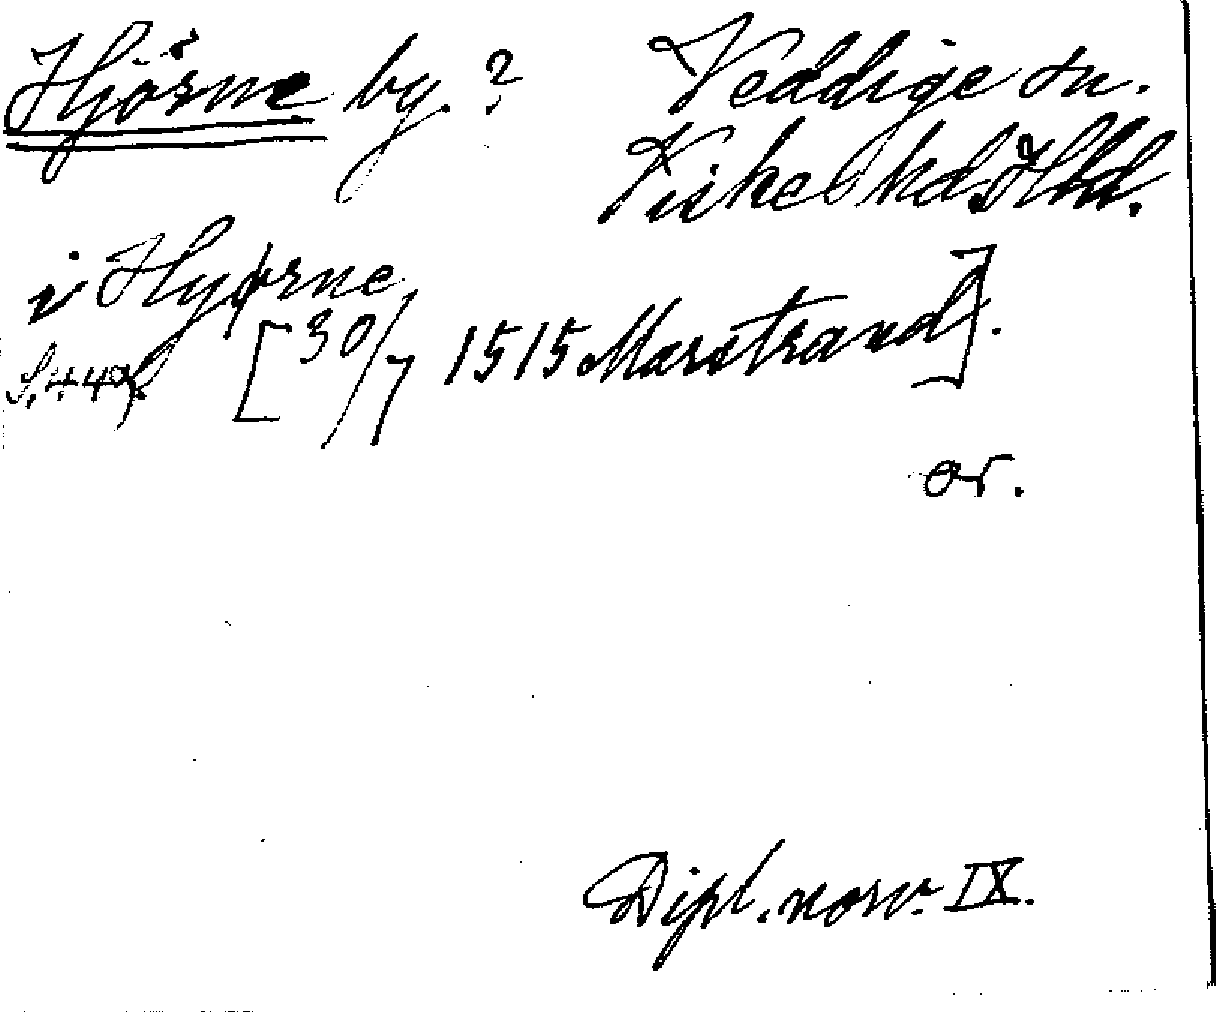 Hjörne by. ?
Veddige sn.
Viske hd. Hld.
i Hyørne
S. 449. [30/7 1515 Marstrand].
or.
Dipl. norv. IX.